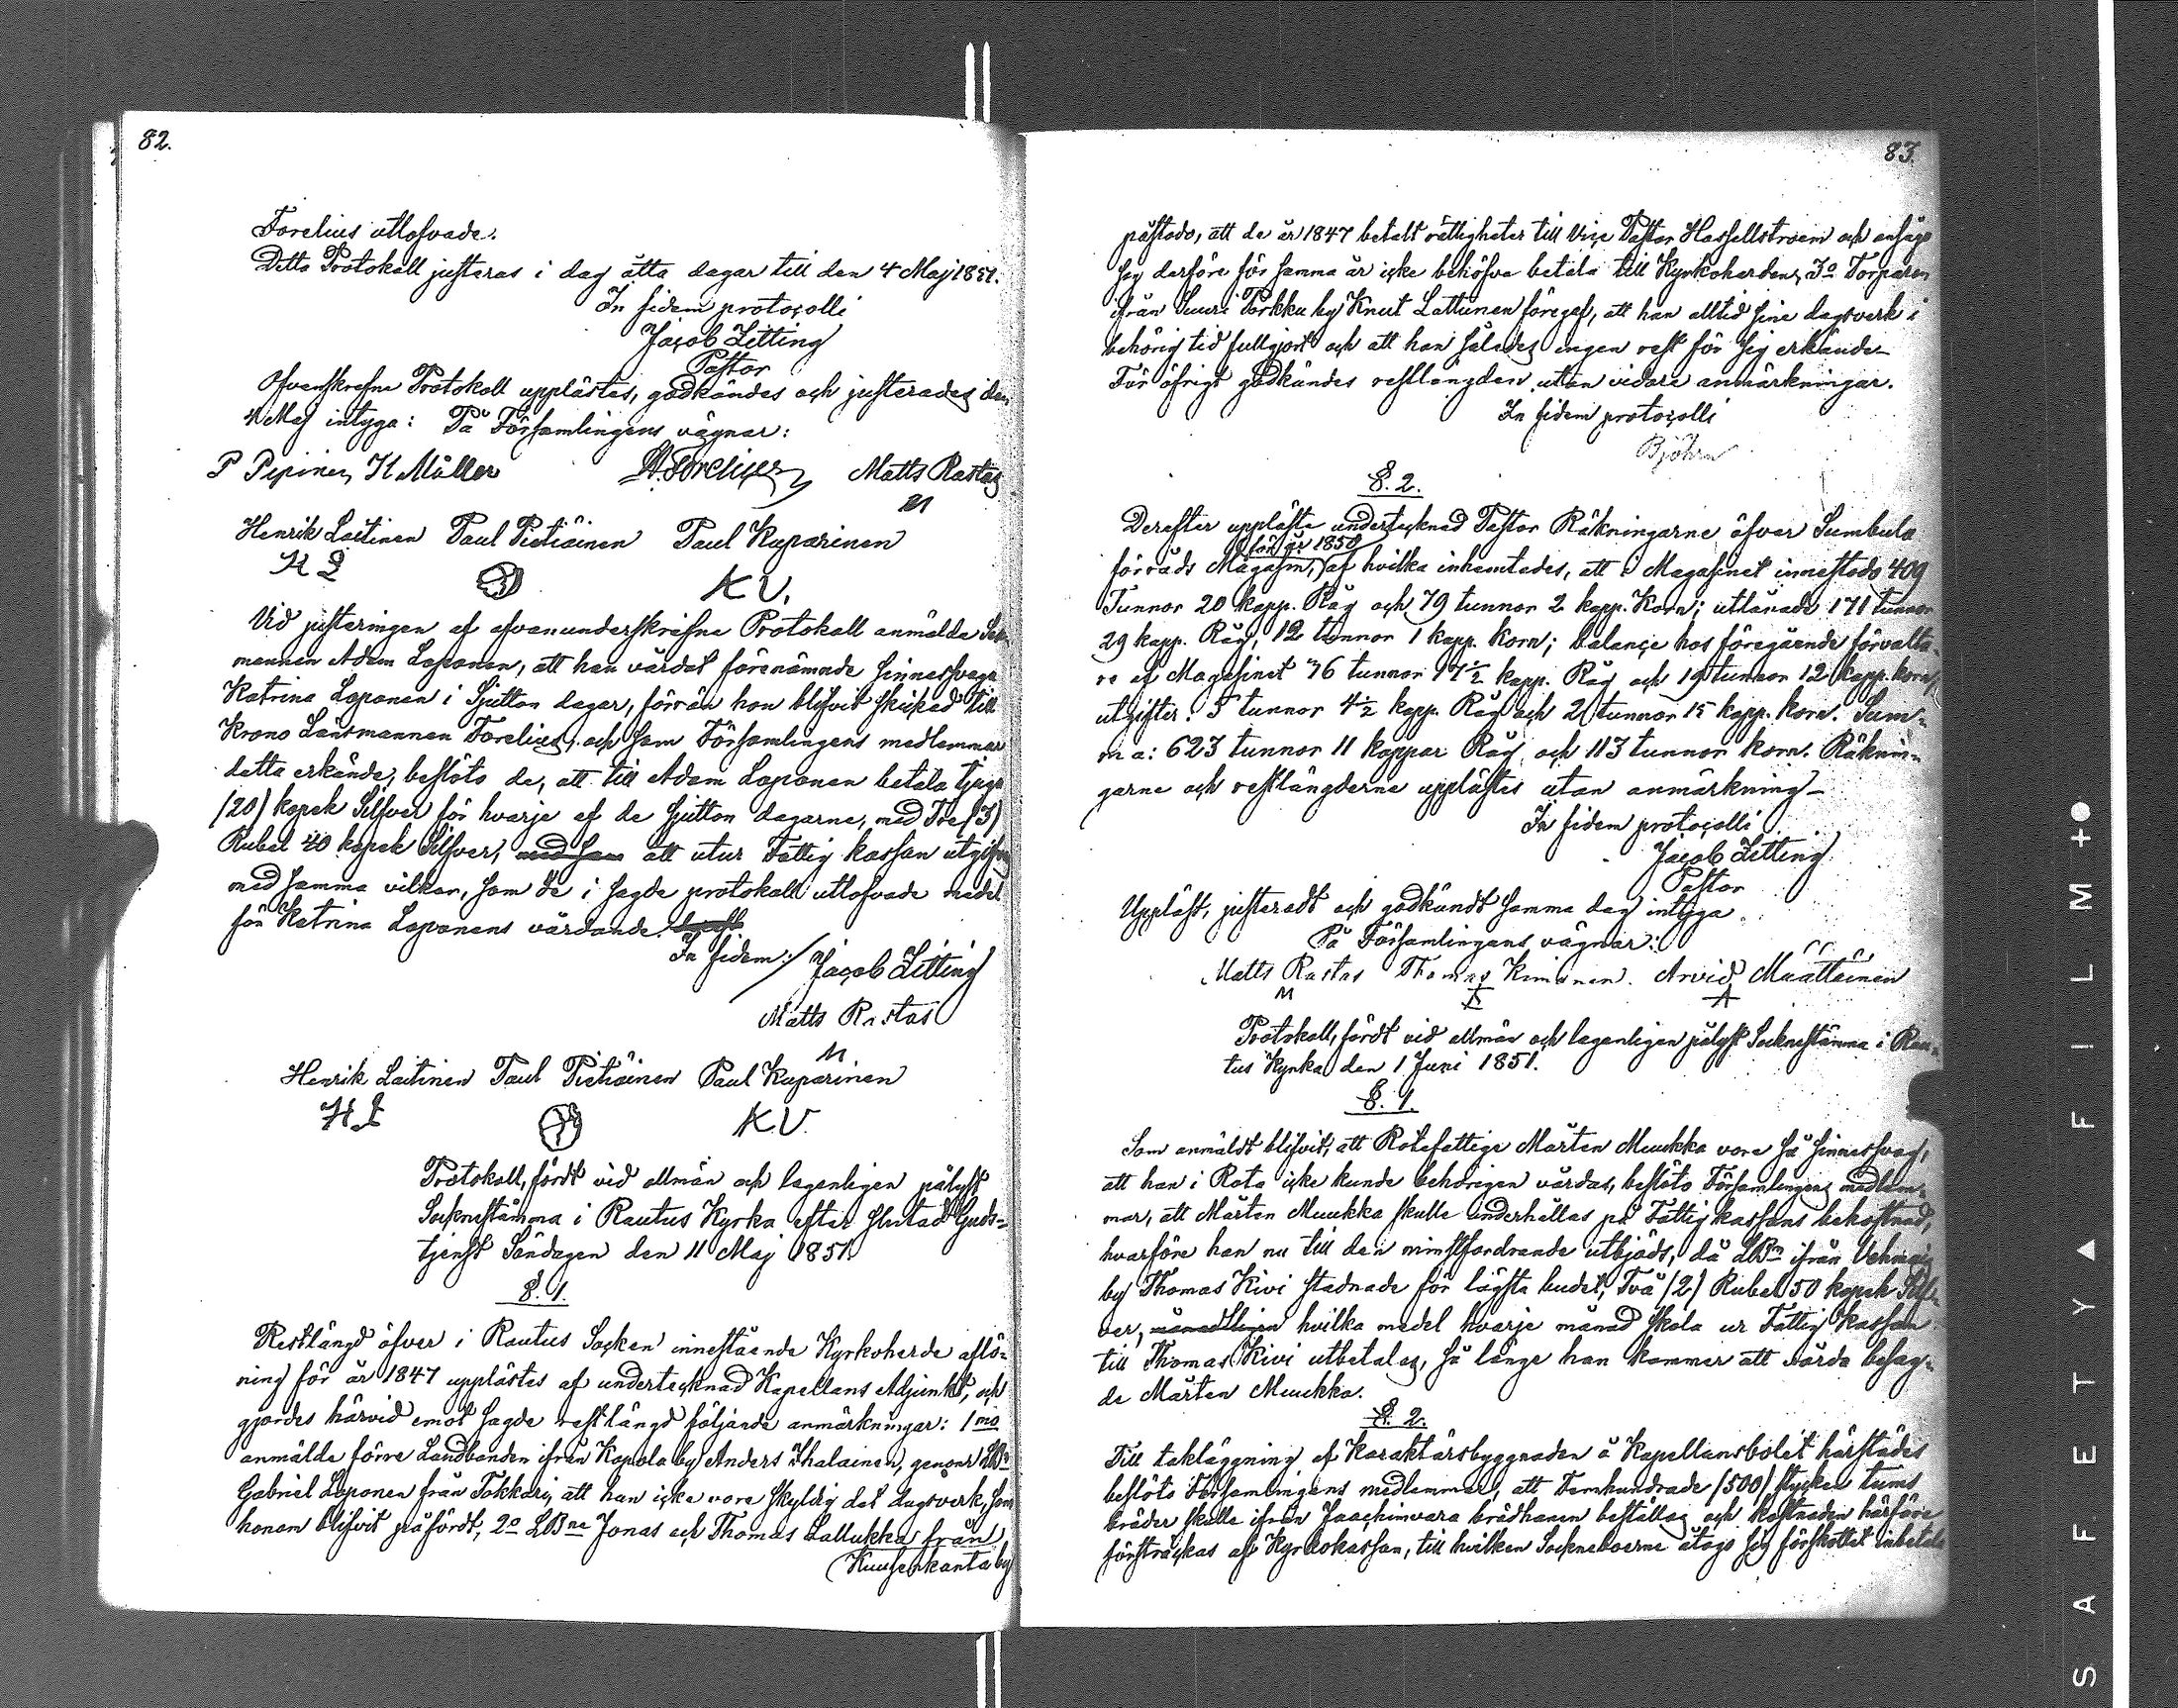 82.
Forelius utlofvade.
Detta Protokoll justeras i dag åtta dagar till den 4 Maj 1851.
In fidem protocolli
Jacob Zitting
Pastor
Ofvanskrefne Protokoll upplästes, godkändes och justerades den
4 Maj intyga: På Församlingens vägnar:
P Pipinen, K Möller Forelius Matts Rastas
M
Henrik Laitinen Paul Pietiäinen Paul Kuparinen
H L K V.
Vid justeringen af ofvanunderskrifne Protokoll anmälde
mannen Adam Loponen, att han vårdat förenämnde sinnessvaga
Katrina Loponen i Sjutton dagar, förrän hon blifvit skickad till
Krono Länsmannen Forelius, och som Församlingens medlemmar
detta erkände, beslöto de, att till Adam Loponen betala tjugu
(20) kopek Silfver för hvarje af de sjutton dagarne, med Tre (3)
Rubel 40 kopek Silfver, med som att utur Fattig kassan utgifvas
med samma vilkor, som de i sagde protokoll utlofvade medel
för Katrina Loponens vårdande.
In fidem: Jacob Zitting
Matts Rastas
M
Henrik Laitinen Paul Pietiäinen Paul Kuparinen
H L K.V.
Protokoll, fördt vid allmän och lagenligen pålyst
Socknestämma i Rautus Kyrka efter slutad Guds-
tjenst Söndagen den 11 Maj 1851.
§. 1.
Restlängd öfver i Rautus Socken innestående Kyrkoherde aflö-
ning för år 1847 upplästes af undertecknad Kapellans Adjunkt, och
gjordes härvid emot sagde restlängd följande anmärkningar: 1mo
anmälde förre Landbonden ifrån Kopola by Anders Ihalainen, genom LBn
Gabriel Loponen från Tokkari, att han icke vore skyldig det dagsverk, som
honom blifvit påfördt, 2o LBne Jonas och Thomas Lallukka från
Kuusenkanta by
83.
påstodo, att de år 1847 betalt rättigheter till Vice Pastor Hassellstroem och ansågo
sig derföre för samma år icke behöfva betala till Kyrkoherden, 3o Torparen
ifrån Suuri Porkku by Knut Lattunen föregaf, att han alltid sine dagsverk i
behörig tid fullgjort och att han således ingen rest för sig erkände.
För öfrigt godkändes restlängden utan vidare anmärkningar.
In fidem protocolli
Björhn
§. 2.
Derefter uppläste undertecknad Pastor Räkningarne öfver Sumbula
för år 1850
förråds Magasin, af hvilka inhemtades, att i Magasinet innestodo 409
Tunnor 20 kapp. Råg och 79 tunnor 2 kapp. Korn; utlånade 171 tunnor
29 kapp. Råg, 12 tunnor 1 kapp. korn; balance hos föregående förvalta-
re af Magasinet 36 tunnor 17½ kapp. Råg och 19 tunnor 12 kapp. korn,
utgifter: 5 tunnor 4½ kapp. Råg och 2 tunnor 15 kapp. korn. Sum-
ma: 623 tunnor 11 kappar Råg, och 113 tunnor korn. Räknin-
garne och restlängderne upplästes utan anmärkning.
In fidem protocolli
Jacob Zitting
Pastor
Uppläst, justeradt och godkändt samma dag intyga
På Församlingens vägnar:
Matts Rastas Thomas Kimanen. Arvid Määttäinen
M A
Protokoll, fördt vid allmän och lagenligen pålyst Sockne­stämma i Rau-
tus Kyrka den 1 Juni 1851.
§. 1.
Som anmäldt blifvit, att Rotefattige Mårten Muukka vore så sinnessvag,
att han i Rota icke kunde behörigen vårdas, beslöto Församlingens medlem-
mar, att Mårten Muukka skulle underhållas på Fattigkassans bekostnad,
hvarföre han nu till den minstfordrande utbjöds, då LBn ifrån Vehmais
by Thomas Kivi stadnade för lägsta budet, Två (2) Rubel 50 kopek Silf-
ver, månadtligen hvilka medel hvarje månad skola ur Fattig kassan
till Thomas Kivi utbetalas, så länge han kommer att vårda besag-
de Mårten Muukka.
§. 2.
Till takläggning af Karaktärsbyggnaden å Kapellansbolet härstädes
beslöto Församlingens medlemmar, att Femhundrade (500) stycken tums
bräder skulle ifrån Jaachimvara brädhanen beställas och kostnaden härföre
försträckas af Kyrkokassan, till hvilken Sockneboerne åtogo sig förskottet inbetala
SAFETY FILM